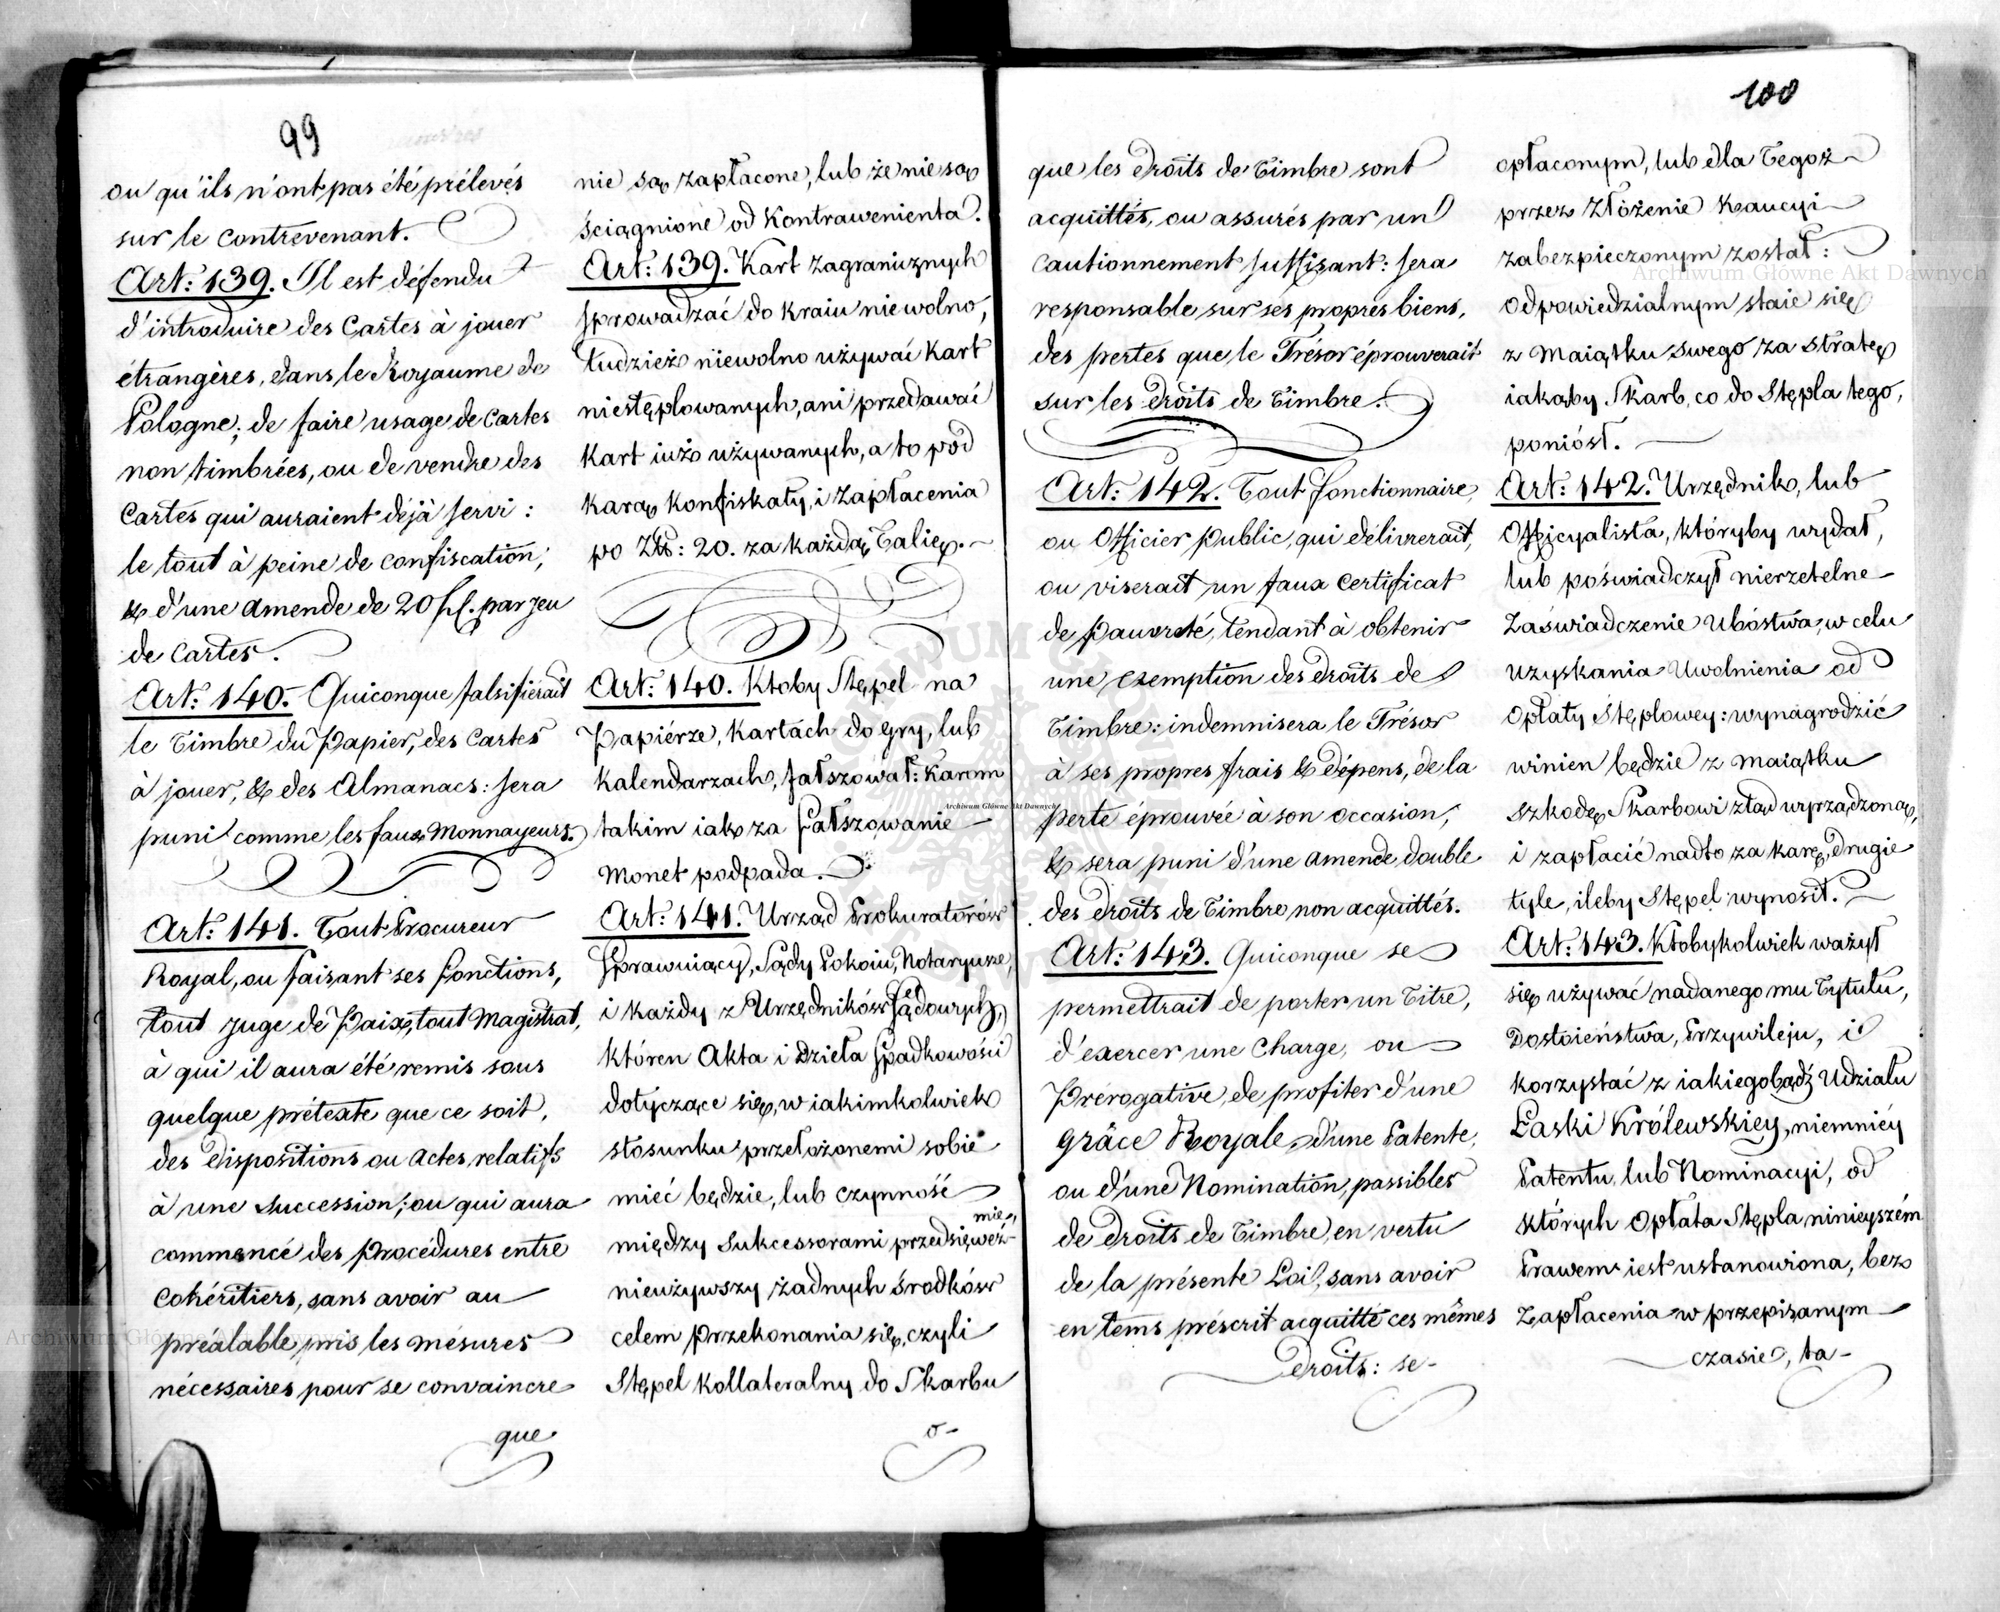 99
ou qu'ils n'ont pas été prélevés
sur le contrevenant.
Art: 139. Il est défendu
d'introduire des Cartes à jouer
étrangères, dans le Royaume de
Pologne; de faire usage de Cartes
non timbrées, ou de vendre des
Cartes qui auraient déjà servi:
le tout à peine de confiscation,
& d'une amende de 20 fl. par jeu
de Cartes.
Art: 140. Quiconque falsifierait
le Timbre du Papier, des Cartes
à jouer, & des Almanacs: sera
puni comme les faux Monnayeurs.
Art: 141. Tout Procureur
Royal, ou faisant ses fonctions,
tout Juge de Paix, tout Magistrat,
à qui il aura été remis sous
quelque prétexte que ce soit,
des dispositions ou Actes relatifs
à une Succession; ou qui aura
commencé des Procédures entre
Cohéritiers, sans avoir au
préalable pris les mésures
nécessaires pour se convaincre
que
nie są zapłacone, lub że nie są
ściągnione od Kontrawenienta.
Art: 139. Kart zagranicznych
sprowadzać do kraiu nie wolno,
tudzież niewolno używać Kart
niestęplowanych, ani przedawać
Kart iuż używanych, a to pod
karą konfiskaty, i zapłacenia
po Zł: 20. za każdą Talię.
Art: 140. Ktoby Stępel na
Papiérze, Kartach do gry, lub
Kalendarzach, fałszował: Karom
takim iak za fałszowanie
Monet podpada.
Art: 141. Urząd Prokuratorów
sprawuiący, Sądy Pokoiu, Notaryusze,
i każdy z Urzędników Sądowych,
któren Akta i dzieła Spadkowości
dotyczące się, w iakimkolwiek
stosunku przełożonemi sobie
mieć będzie, lub czynność
między Sukcessorami przedsięweź-
mie,
nieużywszy żadnych środków
celem przekonania się, czyli
Stępel kollateralny do Skarbu
o-
100
que les droits de Timbre sont
acquittés, ou assurés par un
cautionnement suffisant: sera
responsable sur ses propres biens,
des pertes que le Trésor éprouverait
sur les droits de Timbre.
Art: 142. Tout fonctionnaire,
ou Officier public, qui délivrerait,
ou viserait un faux Certificat
de pauvreté, tendant à obtenir
une exemption des droits de
Timbre: indemnisera le Trésor
à ses propres frais & dépens, de la
perte éprouvée à son occasion,
& sera puni d'une amende double
des droits de Timbre non acquittés.
Art: 143. Quiconque se
permettrait de porter un Titre,
d'exercer une Charge, ou
Prérogative, de profiter d'une
grâce Royale, d'une Patente,
ou d'une Nomination, passibles
de droits de Timbre en vertu
de la présente Loi, sans avoir
en tems préscrit acquitté ces mêmes
droits: se-
opłaconym, lub dla Tegoż
przez złóżenie Kaucyi
zabezpieczonym został:
odpowiedzialnym staie się
z Maiątku swego za stratę
iakąby Skarb, co do Stępla tego,
poniósł.
Art: 142. Urzędnik, lub
Officyalista, któryby wydał,
lub poświadczył nierzetelne
Zaświadczenie Ubóstwa, w celu
uzyskania Uwolnienia od
Opłaty Stęplowey: wynagrodzić
winien będzie z Maiątku
szkodę Skarbowi ztąd urządzoną,
i zapłacić nadto za karę, drugie
tyle, ileby Stępel wynosił.
Art: 143. Ktobykolwiek ważył
się używać nadanego mu Tytułu,
Dostoieństwa, Przywileju, i
korzystać z iakiegobądź Udziału
Łaski Królewskiey, niemniéy
Patentu, lub Nominacyi, od
których Opłata Stępla ninieyszém
Prawem iest ustanowiona, bez
Zapłacenia w przepisanym
czasie, ta-
Archiwum Główne Akt Dawnych
Archiwum Główne Akt Dawnych
Archiwum Główne Akt Dawnych